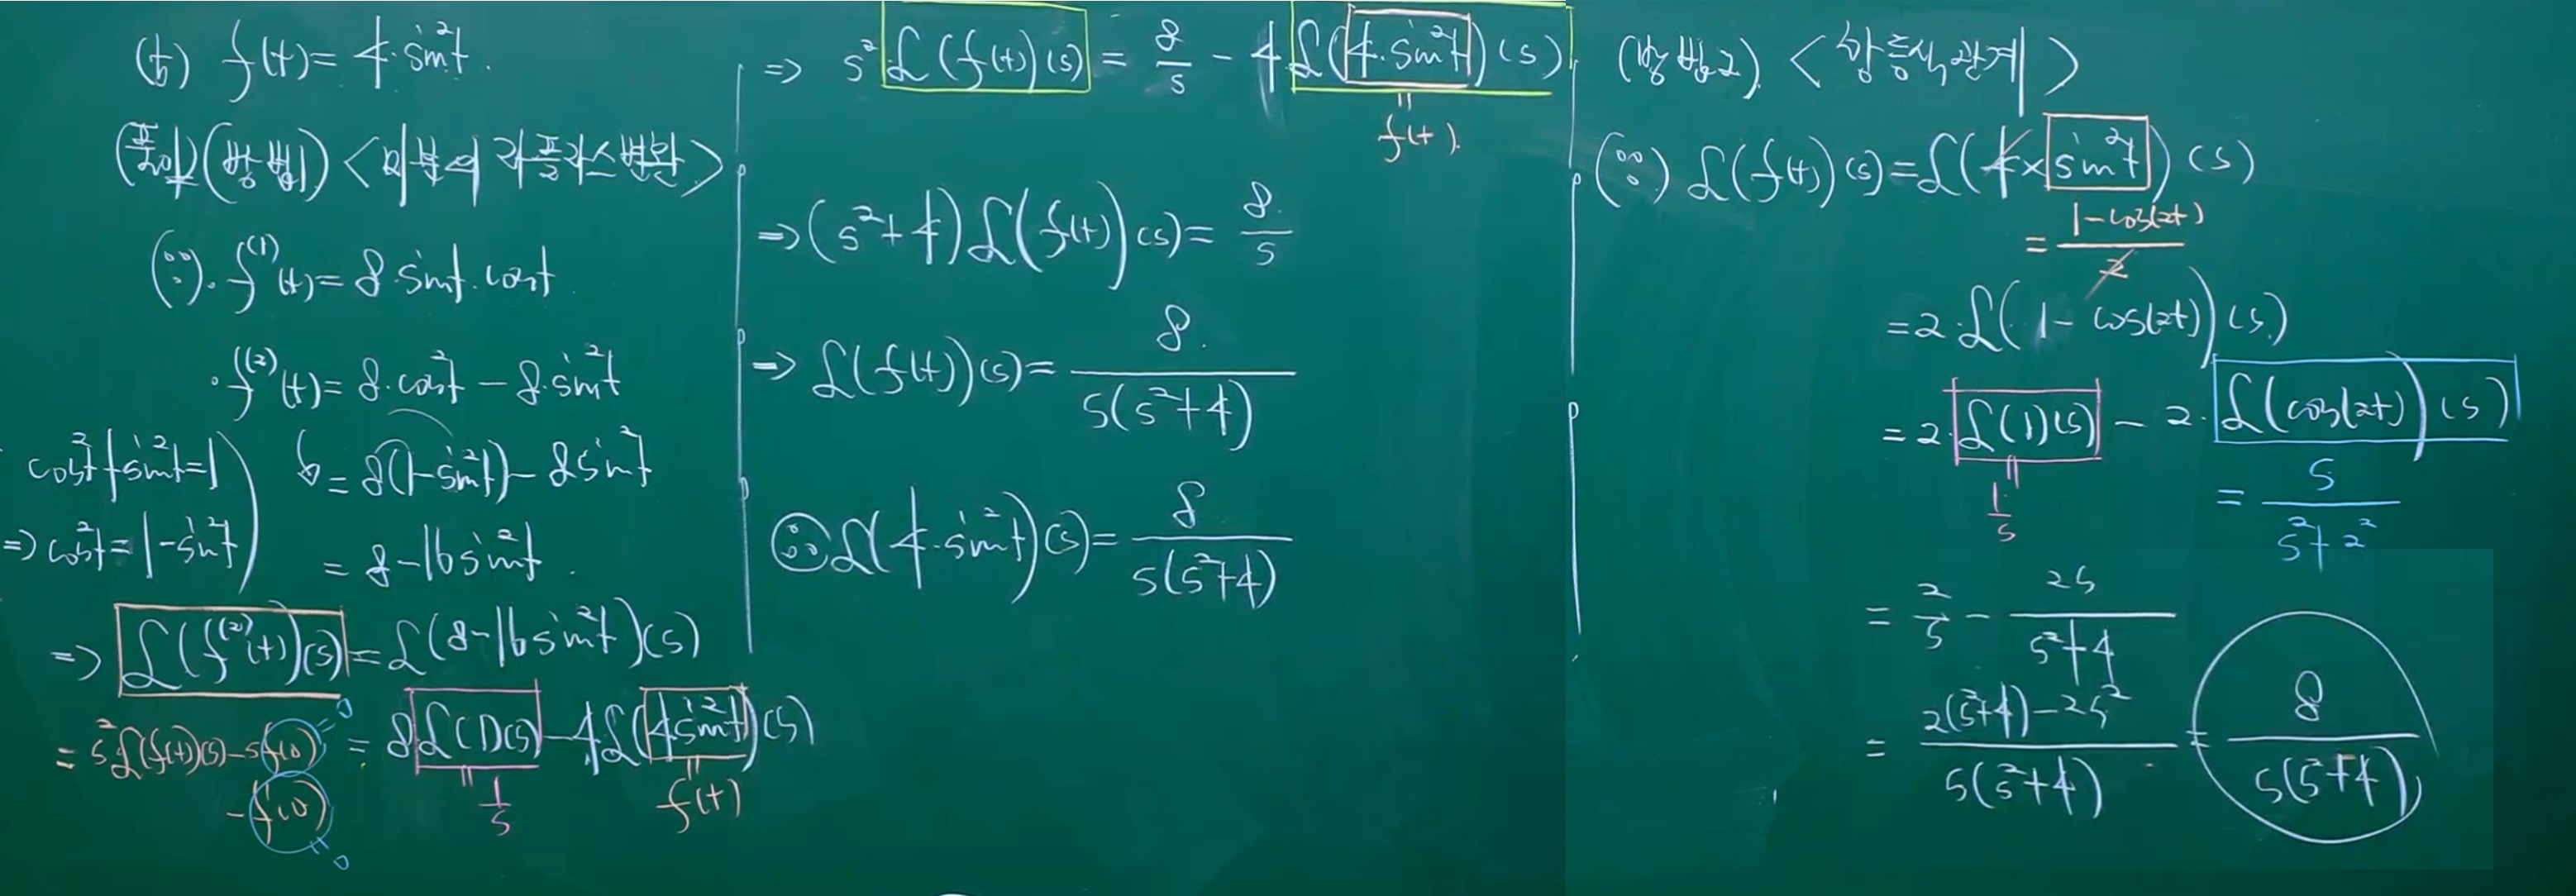 (b) f(t) = 4·sin²t.
(풀이) (방법1) <미분의 라플라스변환>
(∵)· f⁽¹⁾(t) = 8·sint·cost
· f⁽²⁾(t) = 8·cos²t − 8·sin²t
= 8(1−sin²t) − 8sin²t
cos²t + sin²t = 1
⇒ cos²t = 1 − sin²t
= 8 − 16sin²t.
⇒ ℒ(f⁽²⁾(t))(s) = ℒ(8 − 16sin²t)(s)
= s²ℒ(f(t))(s) − sf(0) = 8ℒ(1)(s) − 4ℒ(4sin²t)(s)
= 0
− f'(0)
= 0
= 1/s
= f(t)
⇒ s²ℒ(f(t))(s) = 8/s − 4ℒ(4·sin²t)(s)
= f(t).
⇒ (s²+4)ℒ(f(t))(s) = 8/s
⇒ ℒ(f(t))(s) = 8/s(s²+4)
∴ ℒ(4·sin²t)(s) = 8/s(s²+4)
(방법2) <항등식관계>
(∵) ℒ(f(t))(s) = ℒ(4×sin²t)(s)
= 1−cos(2t)/2
= 2·ℒ(1 − cos(2t))(s)
= 2·ℒ(1)(s) − 2·ℒ(cos(2t))(s)
= 1/s
= s/s²+2²
= 2/s − 2s/s²+4
= 2(s²+4)−2s²/s(s²+4) = 8/s(s²+4)